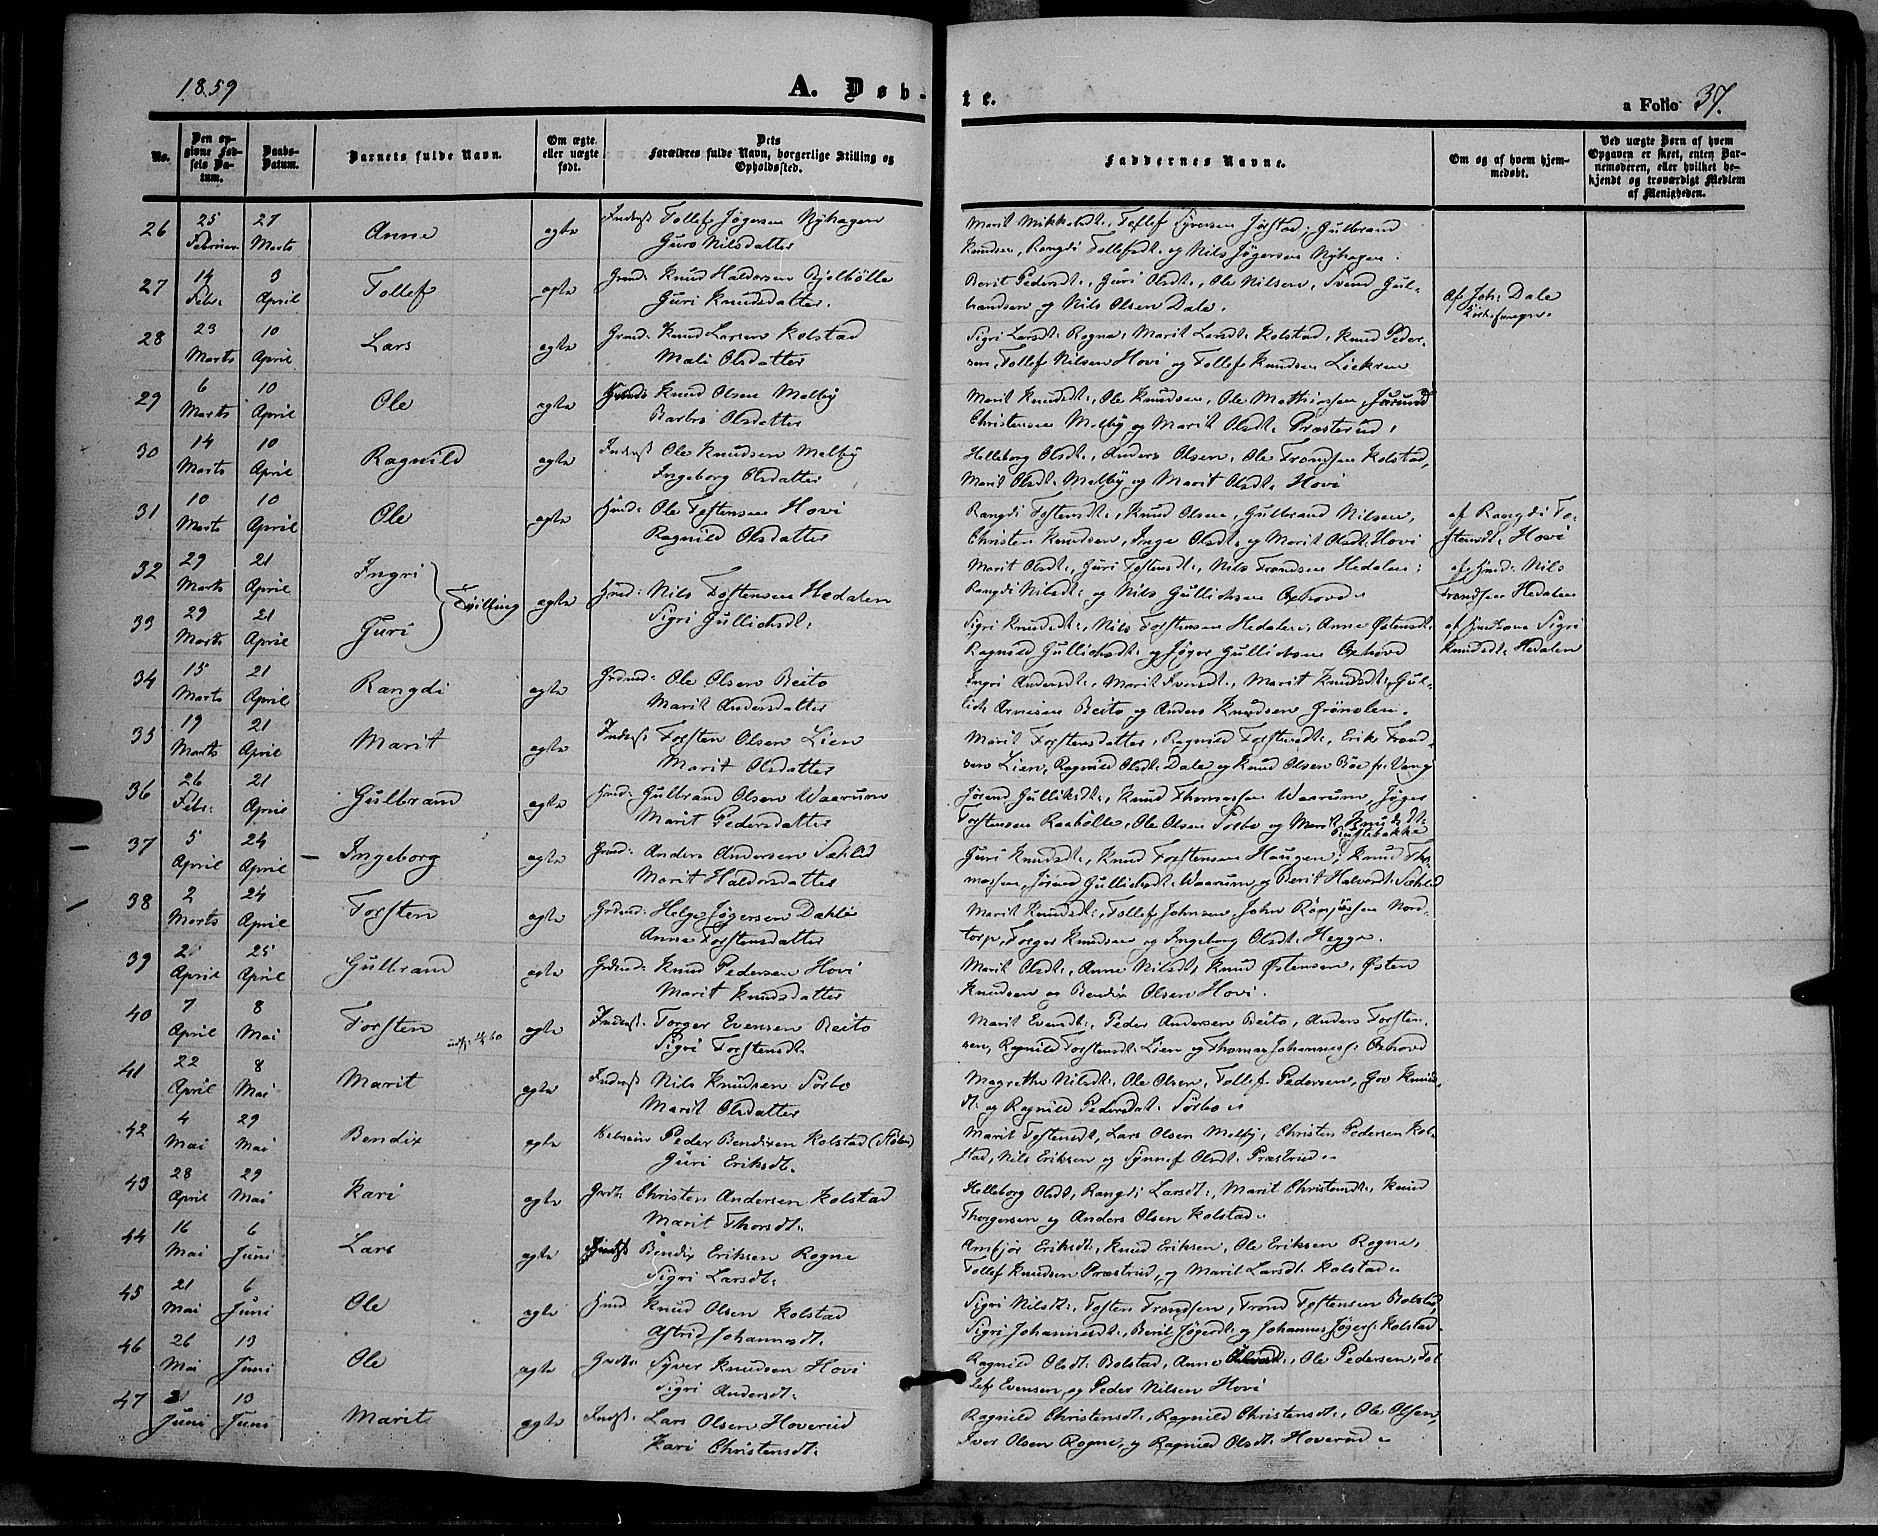 1859
A. Døb-
te.
a Folio 37.
No.
Den op-
givne Fød-
sels Da-
tum.
Daabs-
Datum.
Barnets fulde Navn.
Om ægte
eller uægte
født.
Dets
Forældres fulde Navn, borgerlige Stilling og
Opholdssted.
Faddernes Navne.
Om og af hvem hjem-
medøbt.
Ved uægte Børn af hvem
Opgaven er skeet, enten Bar-
nemoderen, eller hvilket be-
kjendt og troværdigt Medlem
af Menigheden.
26 25 Februar 27 Marts Anne ægte Inderst Tollef Jøgersen Nyhagen
Guro Nilsdatter
Marit Mikkelsdt:, Tollef Syversen Jørstad, Gulbrand
Knudsen, Rangdi Tollefsdt: og Nils Jøgersen Nyhagen.
27 14 Febr: 3 April Tollef ægte Grmd: Knud Haldorsen Bjelbølle
Guri Knudsdatter.
Berit Pedersdt:, Guri Olsdt:, Ole Nilsen, Svend Gul-
brandsen og Nils Olsen Dale.
Af Joh: Dale
Kirkesanger.
28 23 Marts 10 April Lars ægte Grmd: Knud Larsen Kolstad
Mali Olsdatter
Sigri Larsdt: Rogne, Marit Larsdt: Kolstad, Knud Peder-
sen, Tollef Nilsen Hovi og Tollef Knudsen Liekren
29 6 Marts 10 April Ole ægte Knud Olsen Melby
Barbro Olsdatter
Marit Knudsdt:, Ole Knudsen, Ole Mathiassen, Jørund
Christensen Melby og Marit Olsdt: Præsterud,
30 14 Marts 10 April Ragnild ægte Inderst Ole Knudsen Melby
Ingeborg Olsdatter
Helleborg Olsdt:, Anders Olsen, Ole Trondsen Kolstad,
Marit Olsdt: Melby og Marit Olsdt: Hovi
31 10 Marts 10 April Ole ægte Hmd: Ole Tostensen Hovi
Ragnild Olsdatter
Rangdi Tostensdt:, Knud Olsen, Gulbrand Nilsen,
Christen Knudsen, Inge Olsdt: og Marit Olsdt: Hovi
af Rangdi To-
stensdt: Hovi
32 29 Marts 21 April Ingri Tvilling ægte Hmd: Nils Tostensen Hedalen
Sigri Gullichsdt:
Marit Olsdt:, Guri Tostensdt:, Nils Trondsen Hedalen;
Rangdi Nilsdt: og Nils Gullichsen Oxhovd
af Hmd: Nils
Trondsen Hedalen
33 29 Marts 21 April Guri
Sigri Knudsdt:, Nils Torstensen Hedalen; Anne Østensdt:
Ragnild Gullichsdt: og Jøger Gullichsen Oxhovd
af Huskone Sigri
Knudsdt: Hedalen
34 15 Marts 21 April Rangdi ægte Grdmd: Ole Olsen Beito
Marit Andersdatter
Ingri Andersdt:, Marit Iversdt:, Marit Knudsdt:, Gul-
lich Arnesen Beito og Anders Knudsen Grønolen.
35 19 Marts 21 April Marit ægte Inderst: Torsten Olsen Lien
Marit Olsdatter
Marit Torstensdatter, Ragnild Torstensdt:, Erik Trond-
sen Lien, Ragnild Olsdt: Dale og Knud Olsen Bøe fr: Vang
36 26 Febr: 21 April Gulbrand ægte Hmd: Gulbrand Olsen Waarum
Marit Pedersdatter
Jørend Gulliksdt:, Knud Thomassen Waarum, Jøger
Torstensen Raabølle, Ole Olsen Sørbo og Marit Knudsdt:
Rustebakke
37 5 April 24 April Ingeborg ægte Grmd: Anders Andersen Sæhlid
Marit Haldorsdatter
Guri Knudsdt:, Knud Torstensen Haugen, Knud Tho-
massen, Jørend Gullichsdt: Waarum og Berit Halvorsdt: Sæhlid
38 2 Marts 24 April Torsten ægte Grdmd: Helge Jøgersen Dahle
Anne Torstensdatter
Marit Knudsdt:, Tollef Johnsen, John Rønjussen Nord-
torp, Torger Knudsen og Ingeborg Olsdt: Hegge.
39 2 April 25 April Gulbrand ægte Grdmd: Knud Pedersen Hovi
Marit Knudsdatter
Marit Olsdt:, Anne Nilsdt:, Knud Østensen, Østen
Knudsen og Bendix Olsen Hovi.
40 7 April 8 Mai Torsten ægte Inderst: Torger Evensen Beito
Sigri Torstensdt:
Marit Evensdt:, Peder Andersen Beito, Anders Torsten-
sen, Ragnild Torstensdt: Lien og Thomas Johanness: Oxhovd
41 22 April 8 Mai Marit ægte Inderst Nils Knudsen Sørbo
Marit Olsdatter
Magrethe Nilsdt:, Ole Olsen, Tollef Pedersen, Goe Knuds-
dt: og Ragnild Pedersdat: Sørbo
42 4 Mai 29 Mai Bendix ægte Peder Bendixen Kolstad
Guri Eriksdt:
Marit Tostensdt:, Lars Olsen Melby, Christen Pedersen Kol-
stad, Nils Eriksen og Synnef Olsdt: Præstrud
43 28 April 29 Mai Kari ægte Grdt: Christen Andersen Kolstad
Marit Thorsdt:
Helleborg Olsdt, Rangdi Larsdt:, Marit Christensdt:, Knud
Thorgersen og Anders Olsen Kolstad
44 16 Mai 6 Juni Lars ægte Indst Bendix Eriksen Rogne
Sigri Larsdt:
Arnfjør Eriksdt:, Knud Eriksen, Ole Eriksen Rogne,
Tollef Knudsen Præstrud, og Marit Larsdt: Kolstad
45 21 Mai 6 Juni Ole ægte Hmd Knud Olsen Kolstad
Astrid Johannesdt:
Sigri Nilsdt:, Tosten Trondsen, Trond Tostensen Bolstad,
Sigri Johannesdt:, Berit Jøgersdt: og Johannes Jøgers: Kolstad
46 26 Mai 13 Juni Ole ægte Grdt: Syver Knudsen Hovi
Sigri Andersdt:
Ragnild Olsdt: Bolstad, Anne, Ole Pedersen, Tol-
lef Evensen og Peder Nilsen Hovi
47 2 Juni 13 Juni Marit ægte Indst: Lars Olsen Hoverud
Kari Christensdt:
Ragnild Christensdt:, Ragnild Christensdt:, Ole Olsen,
Iver Olsen Rogne, og Ragnild Olsdt: Hoverud